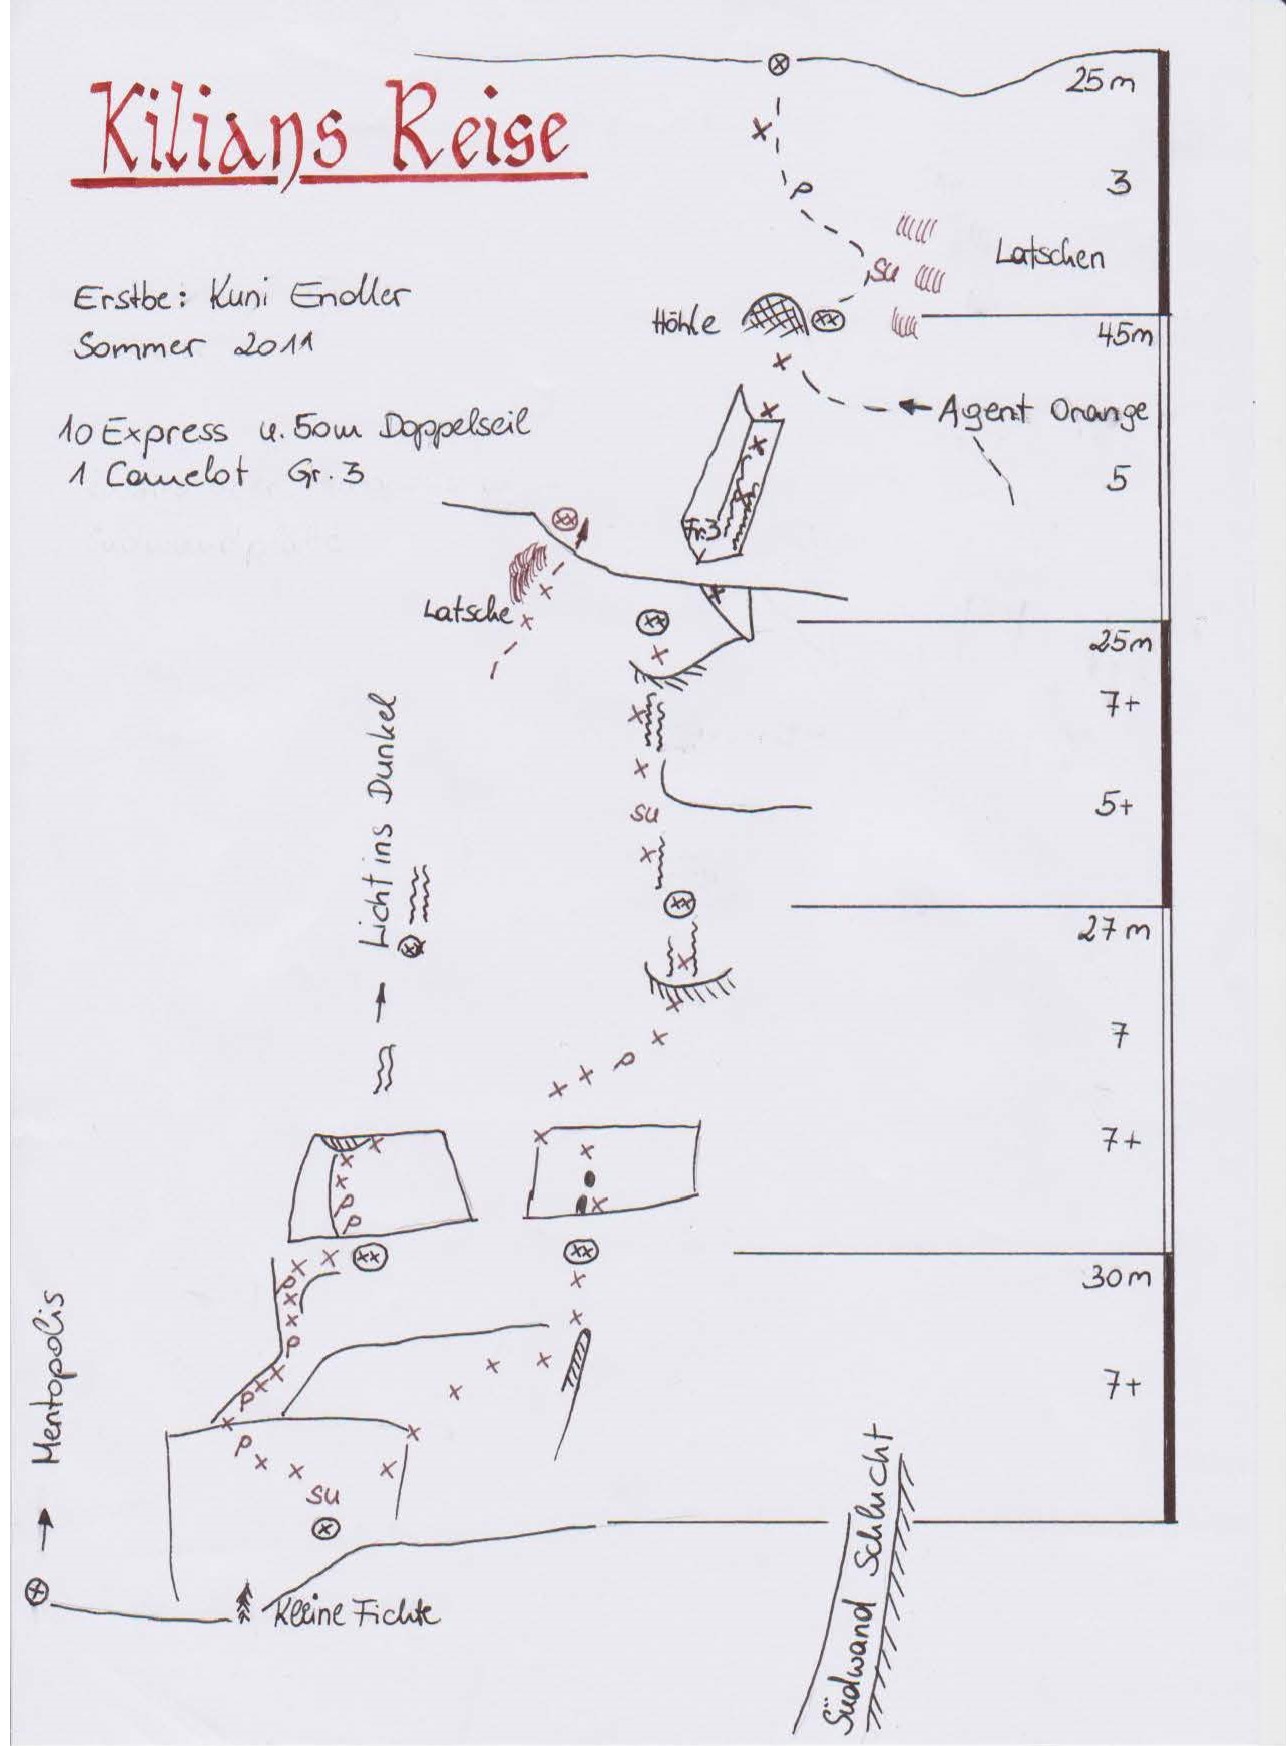 Kilians Reise
Erstbe: Kuni Endler
Sommer 2011
10 Express u. 50m Doppelseil
1 Camelot Gr. 3
25m
3
Latschen
su
Höhle
45m
Agent Orange
5
Fr.3
Latsche
25m
7+
5+
su
Licht ins Dunkel
27m
7
7+
30m
7+
Mentopolis
su
Kleine Fichte
Südwand Schlucht